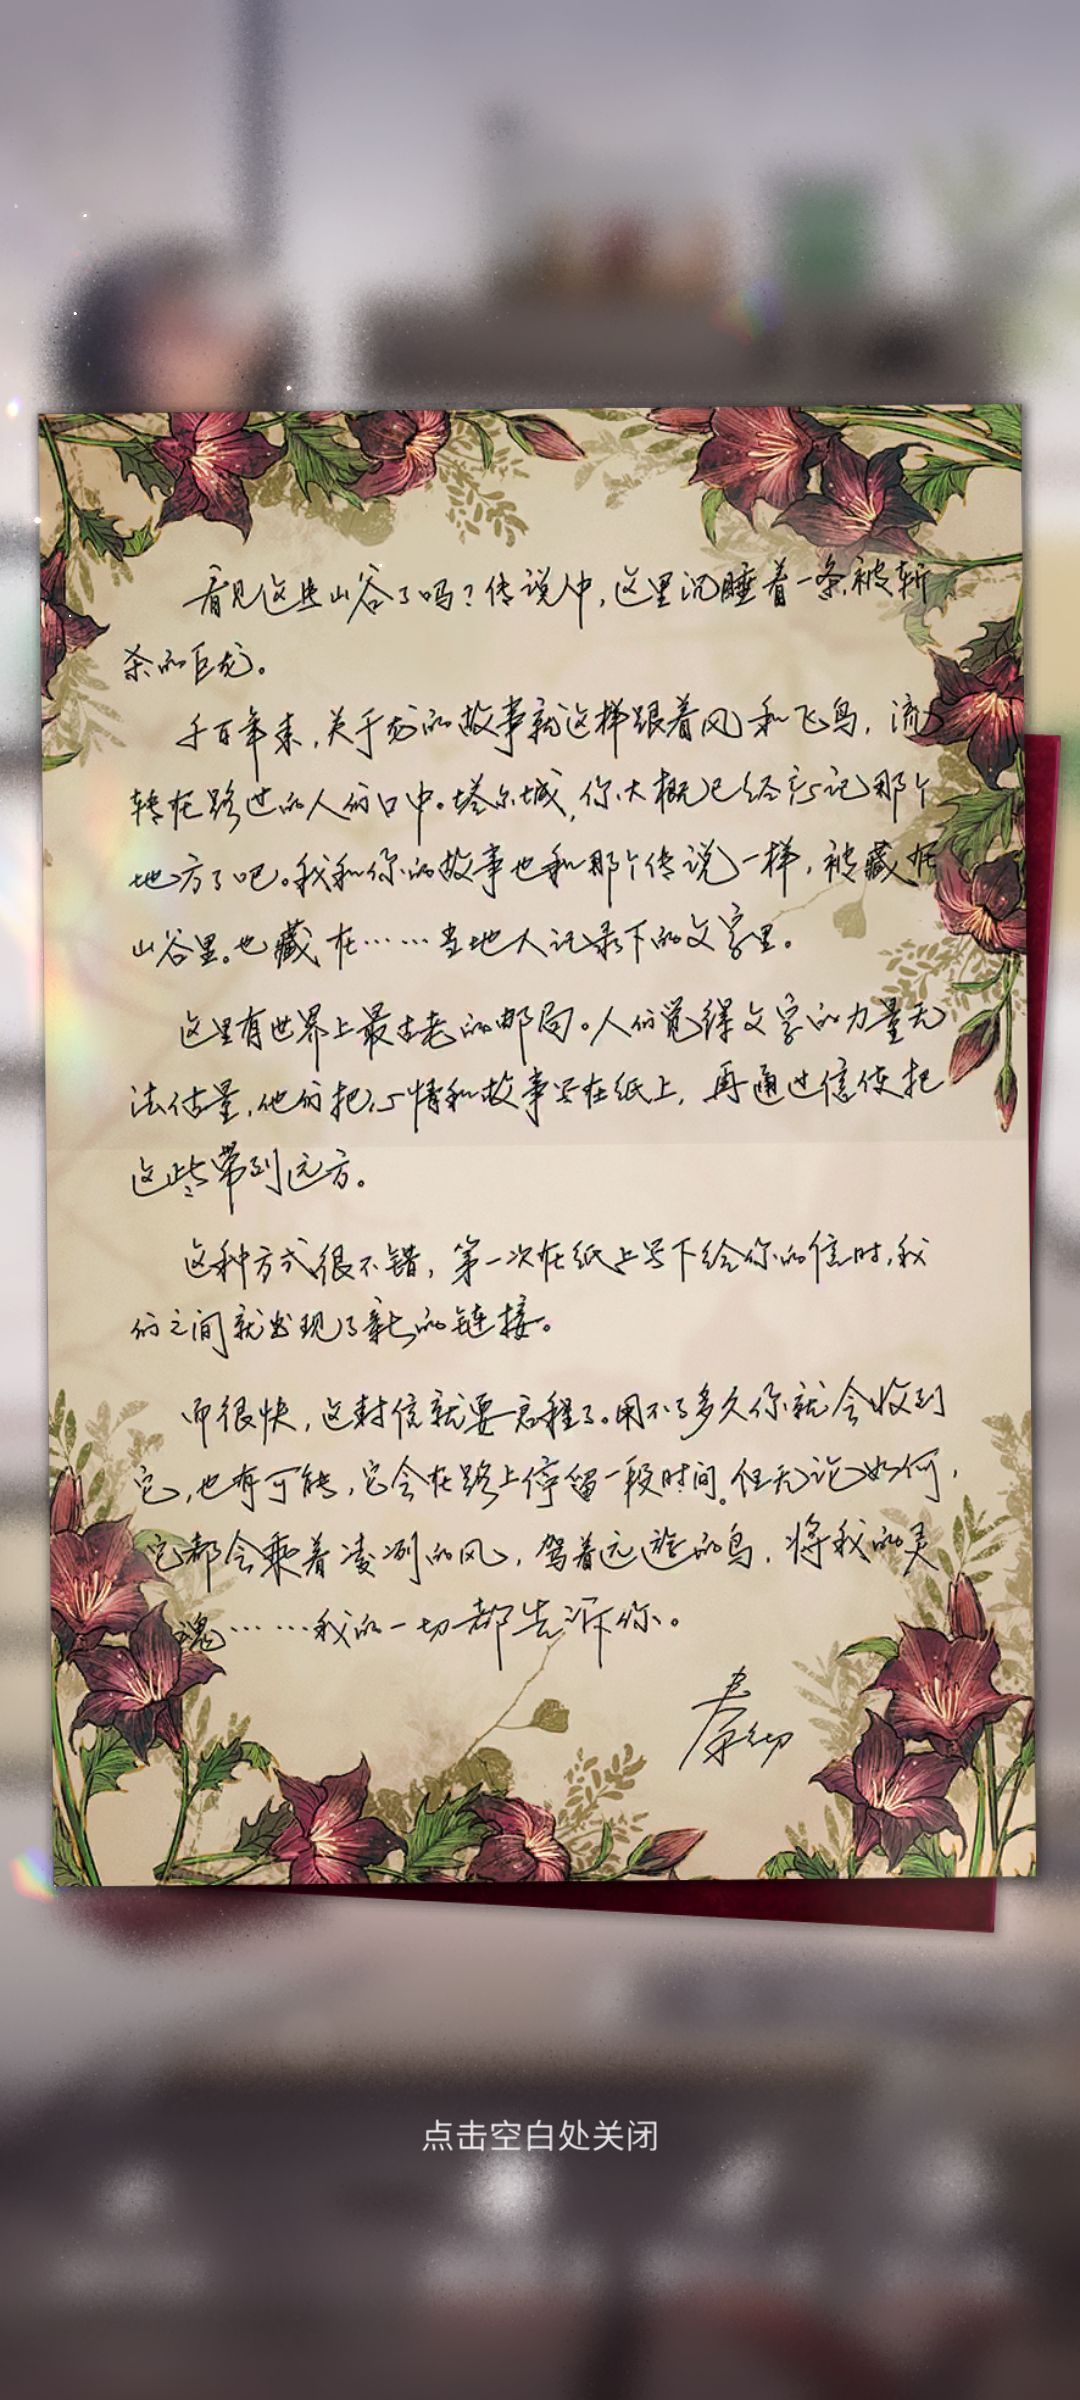 看见这些山谷了吗？传说中，这里沉睡着一条被斩
杀的巨龙。
千百年来，关于龙的故事就这样跟着风和飞鸟，流
转在路过的人们口中。塔尔城，你大概已经忘记那个
地方了吧。我和你的故事也和那个传说一样，被藏在
山谷里。也藏在……当地人记录下的文字里。
这里有世界上最古老的邮局。人们觉得文字的力量无
法估量，他们把心情和故事写在纸上，再通过信使把
这些带到远方。
这种方式很不错，第一次在纸上写下给你的信时，我
们之间就出现了新的链接。
而很快，这封信就要启程了。用不了多久你就会收到
它，也有可能，它会在路上停留一段时间。但无论如何，
它都会乘着凌冽的风，驾着远旅的鸟，将我的灵
魂……我的一切都告诉你。
秦彻
点击空白处关闭